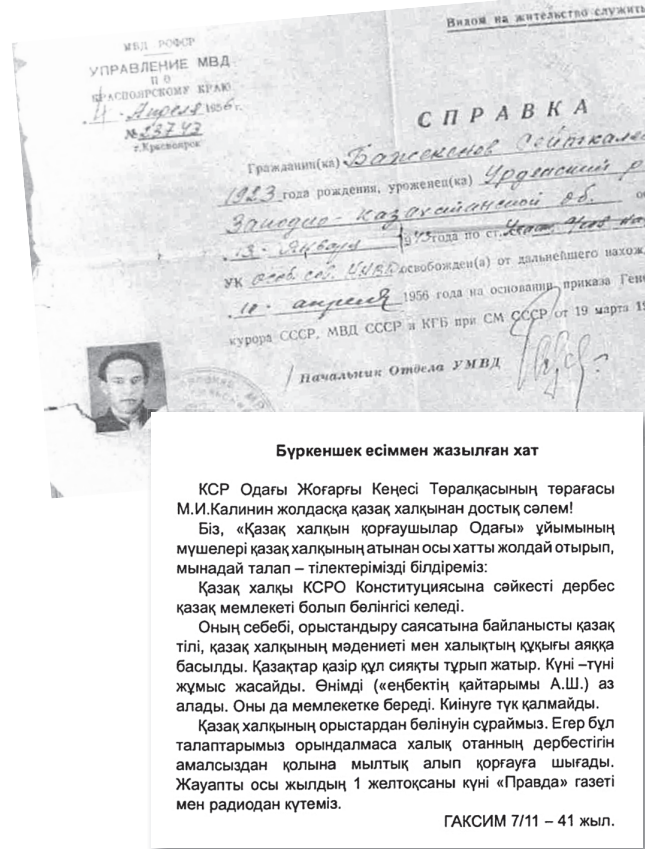 Видом на жительство служить
МВД РСФСР
УПРАВЛЕНИЕ МВД
ПО
КРАСНОЯРСКОМУ КРАЮ
4 Апреля 1956 г.
№ 23743
г.Красноярск
СПРАВКА
Гражданин(ка) Баженов
1923 года рождения, уроженец(ка) Урдепский р
Западно-Казахстанской об.
13 Января 1943 года по ст.
УК особ. сов. НКВД освобожден(а) от дальнейшего нахож
10 апреля 1956 года на основании приказа Ген
курора СССР, МВД СССР и КГБ при СМ СССР от 19 марта 19
Начальник Отдела УМВД
Бүркеншек есіммен жазылған хат
КСР Одағы Жоғарғы Кеңесі Төралқасының төрағасы
М.И.Калинин жолдасқа қазақ халқынан достық сәлем!
Біз, «Қазақ халқын қорғаушылар Одағы» ұйымының
мүшелері қазақ халқының атынан осы хатты жолдай отырып,
мынадай талап – тілектерімізді білдіреміз:
Қазақ халқы КСРО Конституциясына сәйкесті дербес
қазақ мемлекеті болып бөлінгісі келеді.
Оның себебі, орыстандыру саясатына байланысты қазақ
тілі, қазақ халқының мәдениеті мен халықтың құқығы аяққа
басылды. Қазақтар қазір құл сияқты тұрып жатыр. Күні –түні
жұмыс жасайды. Өнімді («еңбектің қайтарымы А.Ш.) аз
алады. Оны да мемлекетке береді. Киінуге түк қалмайды.
Қазақ халқының орыстардан бөлінуін сұраймыз. Егер бұл
талаптарымыз орындалмаса халық отанның дербестігін
амалсыздан қолына мылтық алып қорғауға шығады.
Жауапты осы жылдың 1 желтоқсаны күні «Правда» газеті
мен радиодан күтеміз.
ГАКСИМ 7/11 – 41 жыл.